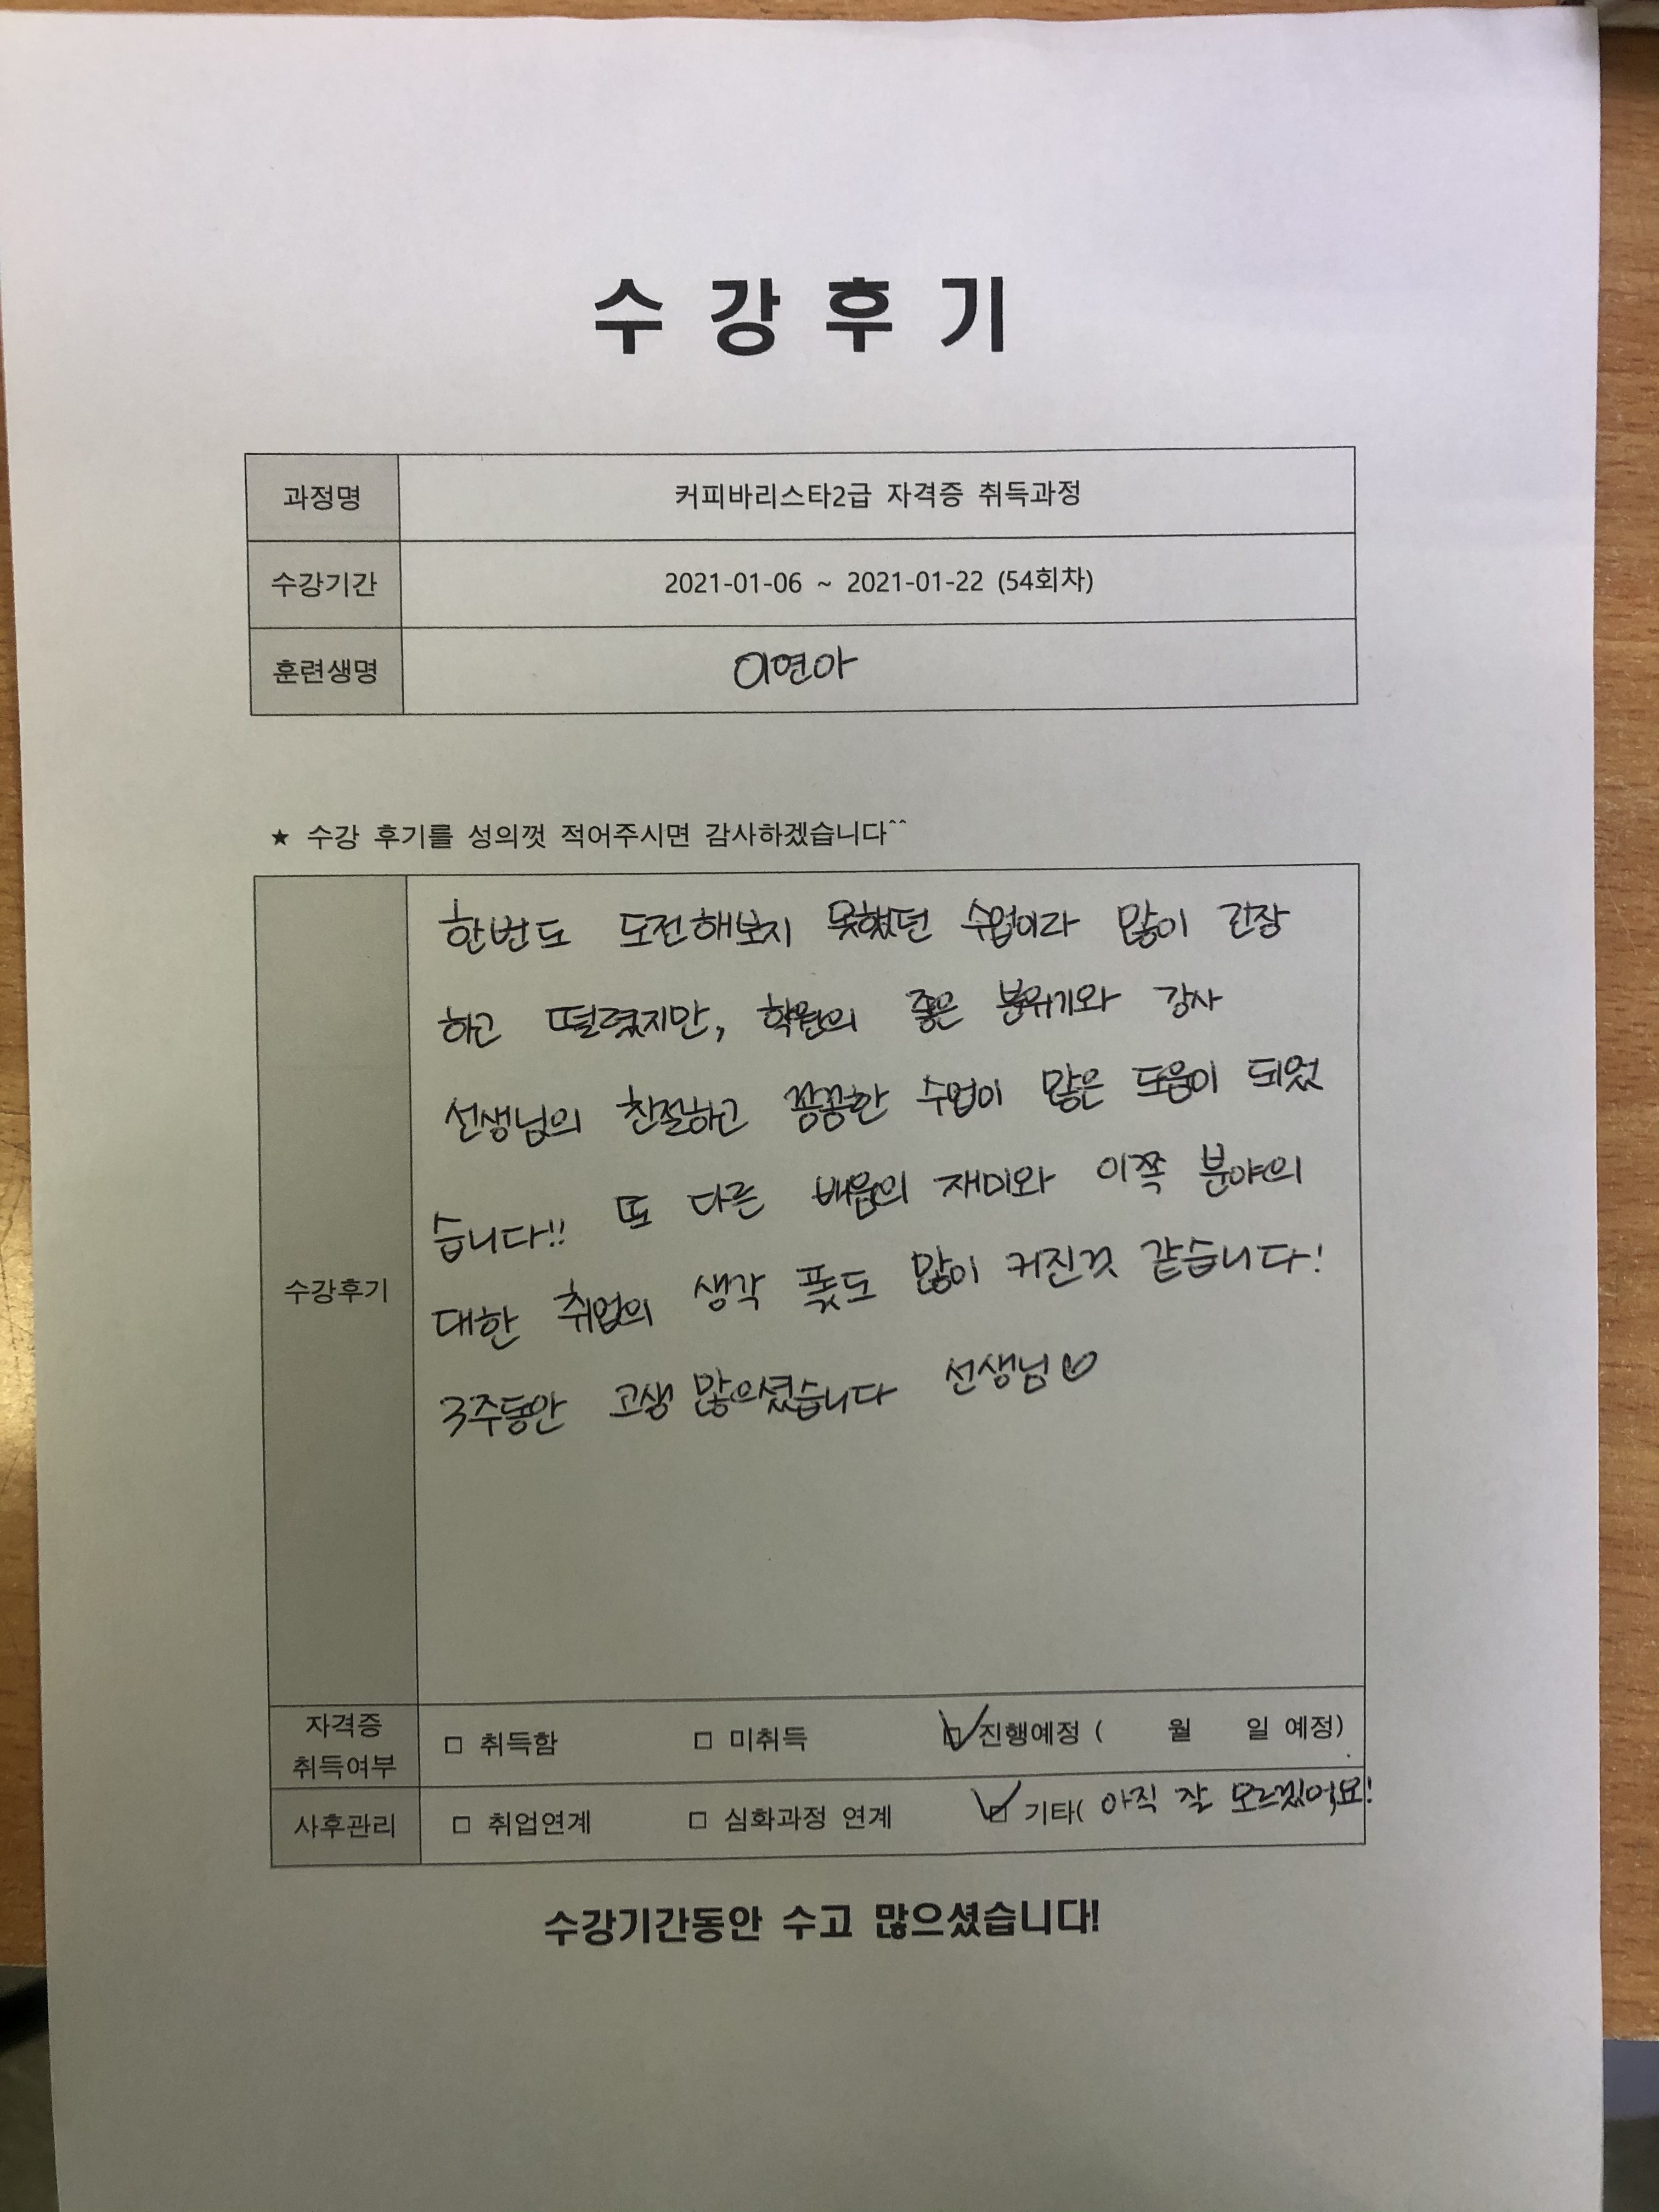 수 강 후 기
과정명 커피바리스타2급 자격증 취득과정
수강기간 2021-01-06 ~ 2021-01-22 (54회차)
훈련생명 이연아
★ 수강 후기를 성의껏 적어주시면 감사하겠습니다^^
수강후기
한번도 도전해보지 못했던 수업이라 많이 긴장
하고 떨렸지만, 학원의 좋은 분위기와 강사
선생님의 친절하고 꼼꼼한 수업이 많은 도움이 되었
습니다!! 또 다른 배움의 재미와 이쪽 분야의
대한 취업의 생각 폭도 많이 커진것 같습니다!
3주동안 고생 많으셨습니다 선생님♡
자격증
취득여부
□ 취득함 □ 미취득 ☑ 진행예정 ( 월 일 예정)
사후관리 □ 취업연계 □ 심화과정 연계 ☑ 기타( 아직 잘 모르겠어요!
수강기간동안 수고 많으셨습니다!